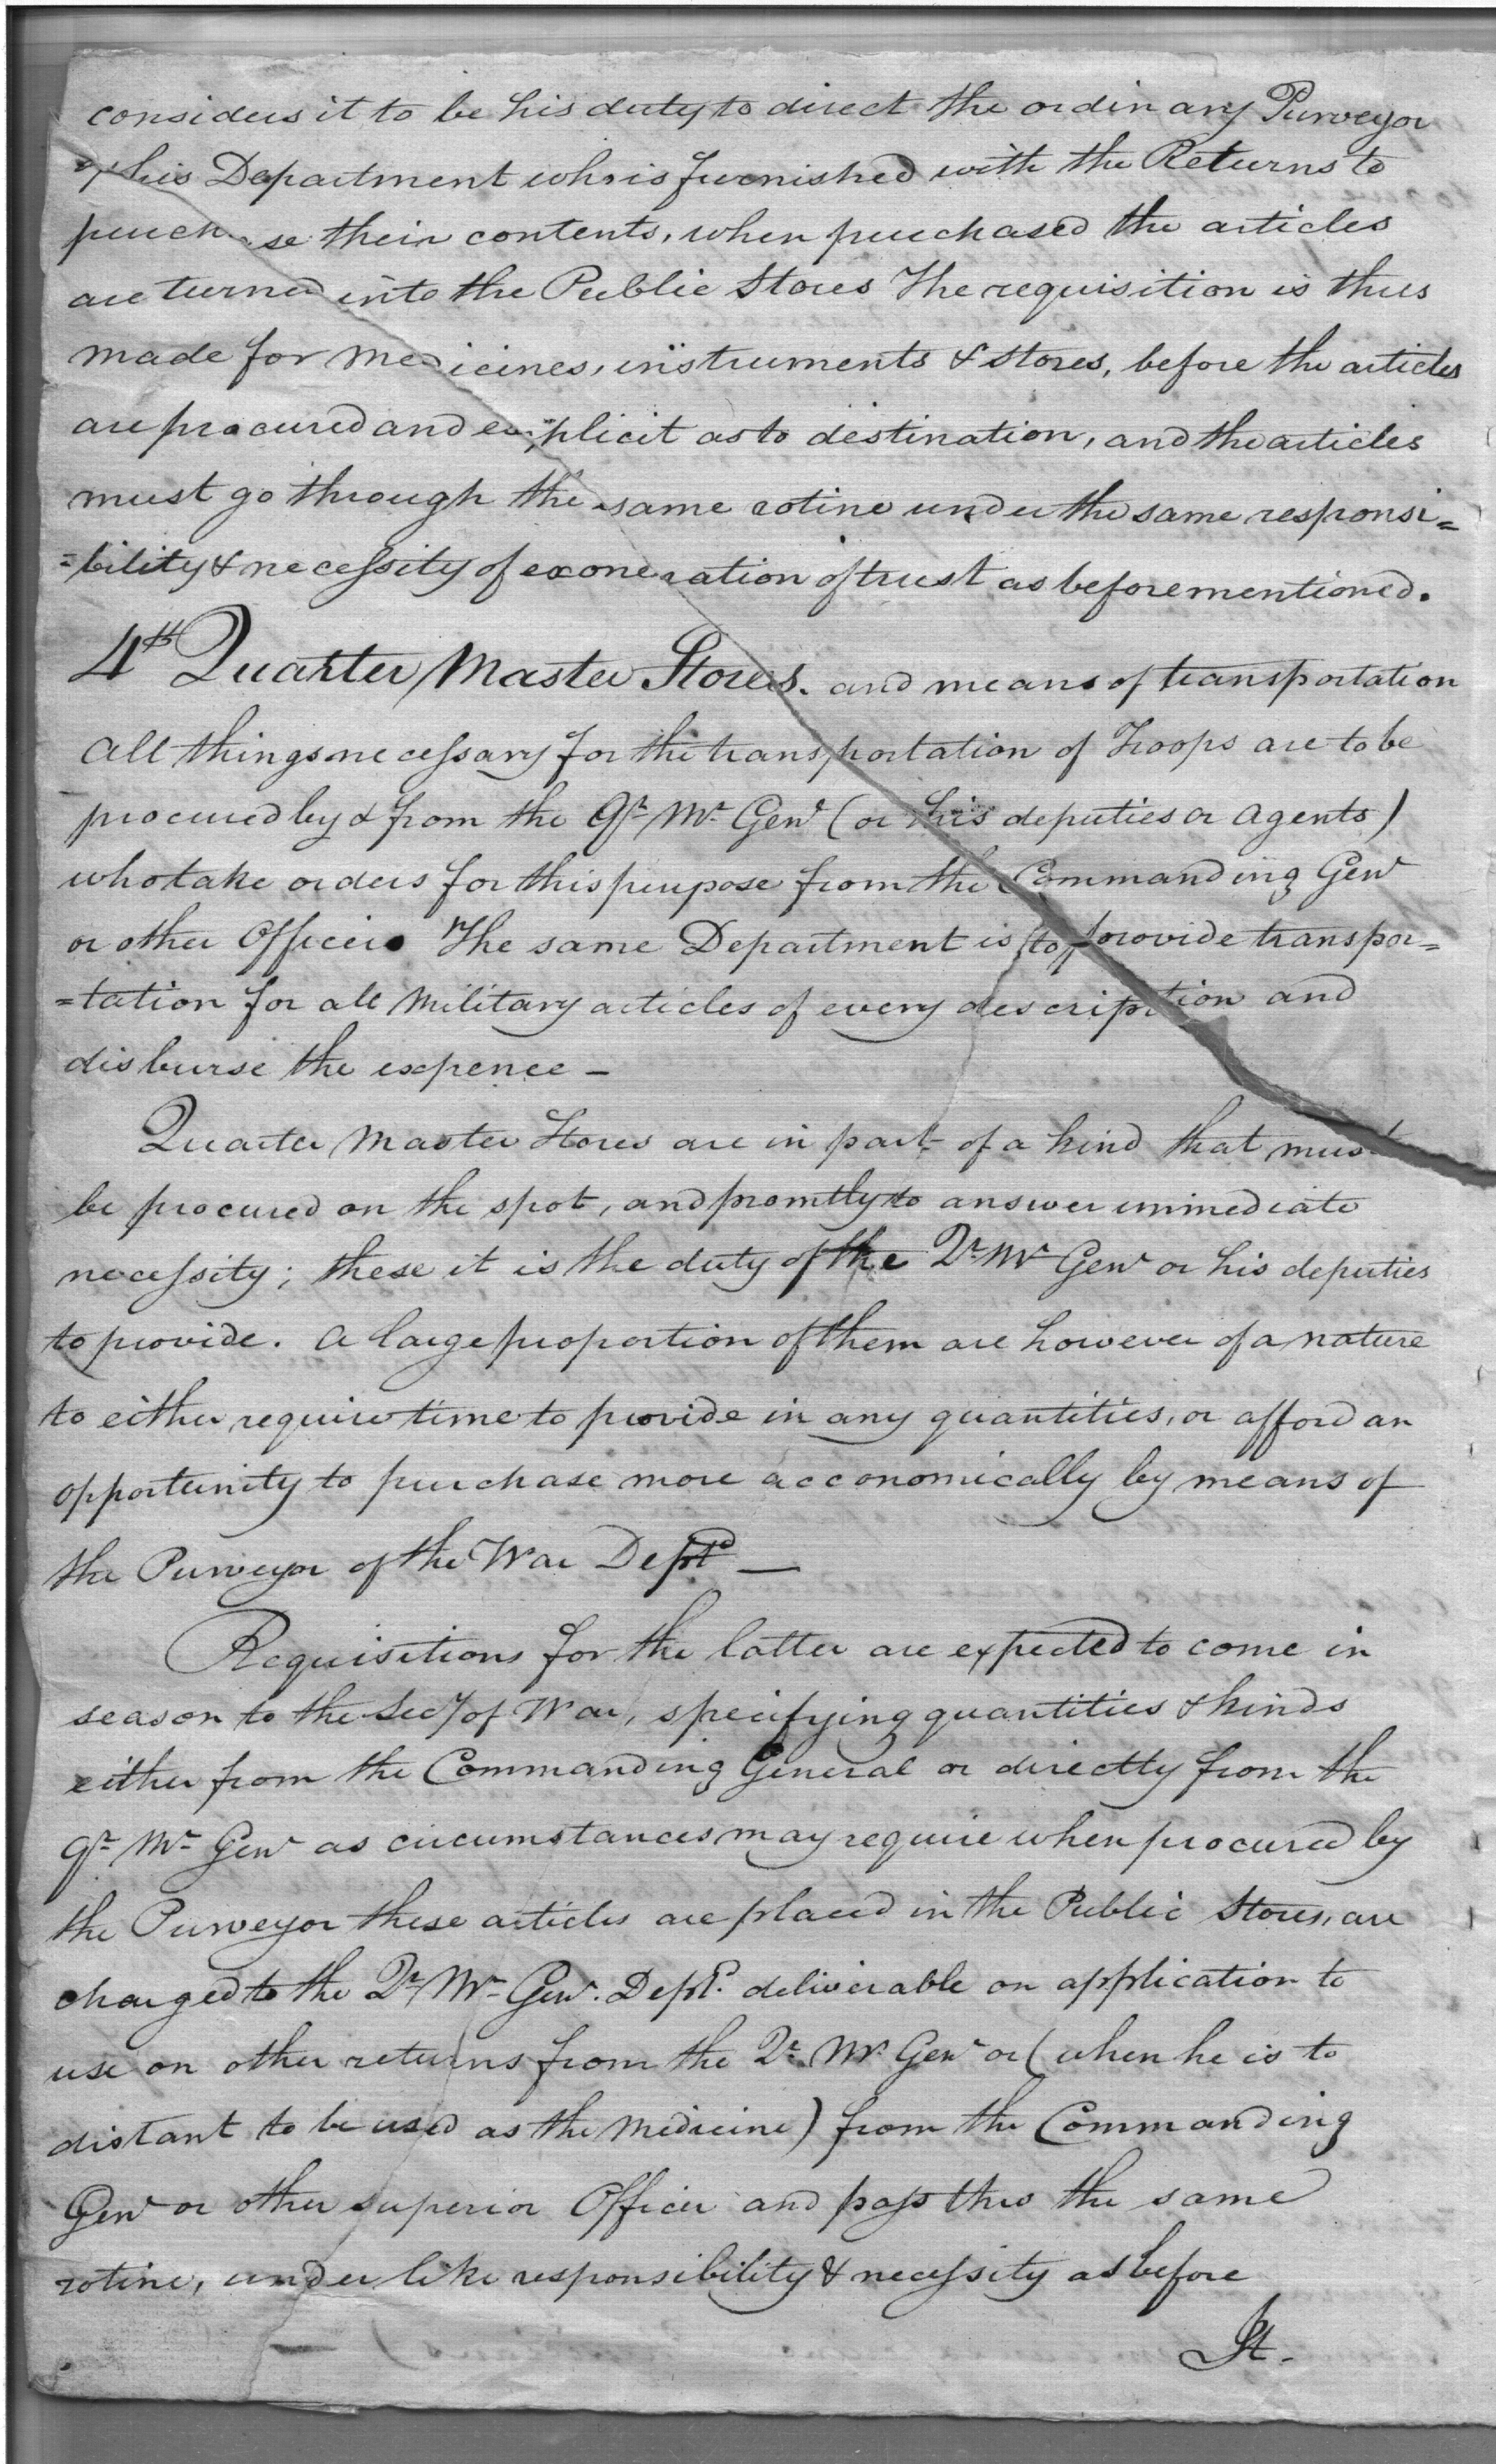 considers it to be his duty to direct the ordinary Purveyor
of his Department who is furnished with the Returns to
purchase their contents, when purchased the articles
are turned into the Public Stores The requisition is thus
made for medicines, instruments & stores, before the articles
are procured and explicit as to destination, and the articles
must go through the same rotine under the same responsi=
=bility & necessity of exoneration of trust as beforementioned.
4th Quarter Master Stores. and means of transportation
All things necessary for the transportation of Troops are to be
procured by & from the Qr Mr Genl (or his deputies or agents)
who take orders for this purpose from the Commanding Genl
or other Officers The same Department is to provide transpor=
=tation for all Military articles of every description and
disburse the expence —
Quarter Master Stores are in part of a kind that must
be procured on the spot, and promtly to answer immediate
necessity; these it is the duty of the Qr Mr Genl or his deputies
to provide. A large proportion of them are however of a nature
to either require time to provide in any quantities, or afford an
opportunity to purchase more acconomically by means of
the Purveyor of the War Dept —
Requisitions for the latter are expected to come in
season to the Secy of War, specifying quantities & kinds
either from the Commanding General or directly from the
Qr Mr Genl as circumstances may require when procured by
the Purveyor these articles are placed in the Public Stores, are
charged to the Qr Mr Genl. Dept. deliverable on application to
use on other returns from the Qr Mr Genl or (when he is to
distant to be used as the Medicine) from the Commanding
Genl or other superior Officer and pass thro the same
rotine, under like responsibility & necessity as before
It.